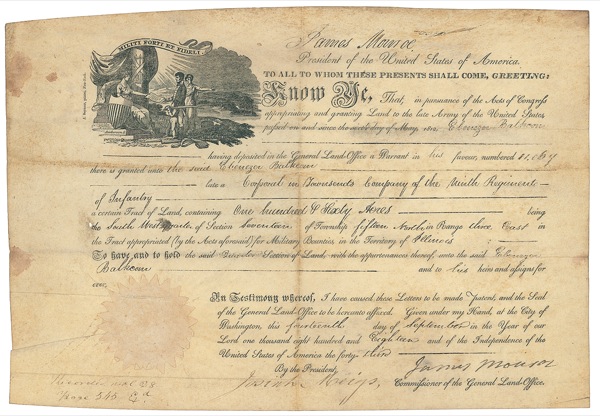 MILITI FORTI ET FIDELI
James Monroe
President of the United States of America.
TO ALL TO WHOM THESE PRESENTS SHALL COME, GREETING:
Know Ye, That, in pursuance of the Acts of Congress
appropriating and granting Land to the late Army of the United States
passed on and since the sixth day of May, 1812, Ebenezer
having deposited in the General Land-Office a Warrant in his favour, numbered
there is granted unto the said Ebenezer
late a Corporal in Townsends Company of the Ninth Regiment
of Infantry
a certain Tract of Land, containing One hundred & Sixty Acres being
the South West quarter of Section Seventeen of Township fifteen North in Range three East in
the Tract appropriated (by the Acts aforesaid) for Military Bounties, in the Territory of Illinois
To have and to hold the said Quarter Section of Land, with the appurtenances thereof, unto the said Ebenezer
and to his heirs and assigns for
ever.
In Testimony whereof, I have caused these Letters to be made Patent, and the Seal
of the General Land-Office to be hereunto affixed. Given under my Hand, at the City of
Washington, this fourteenth day of September in the Year of our
Lord one thousand eight hundred and Eighteen and of the Independence of the
United States of America the forty-third
By the President, James Monroe
Josiah Meigs, Commissioner of the General Land-Office.
Recorded vol 28
page 345